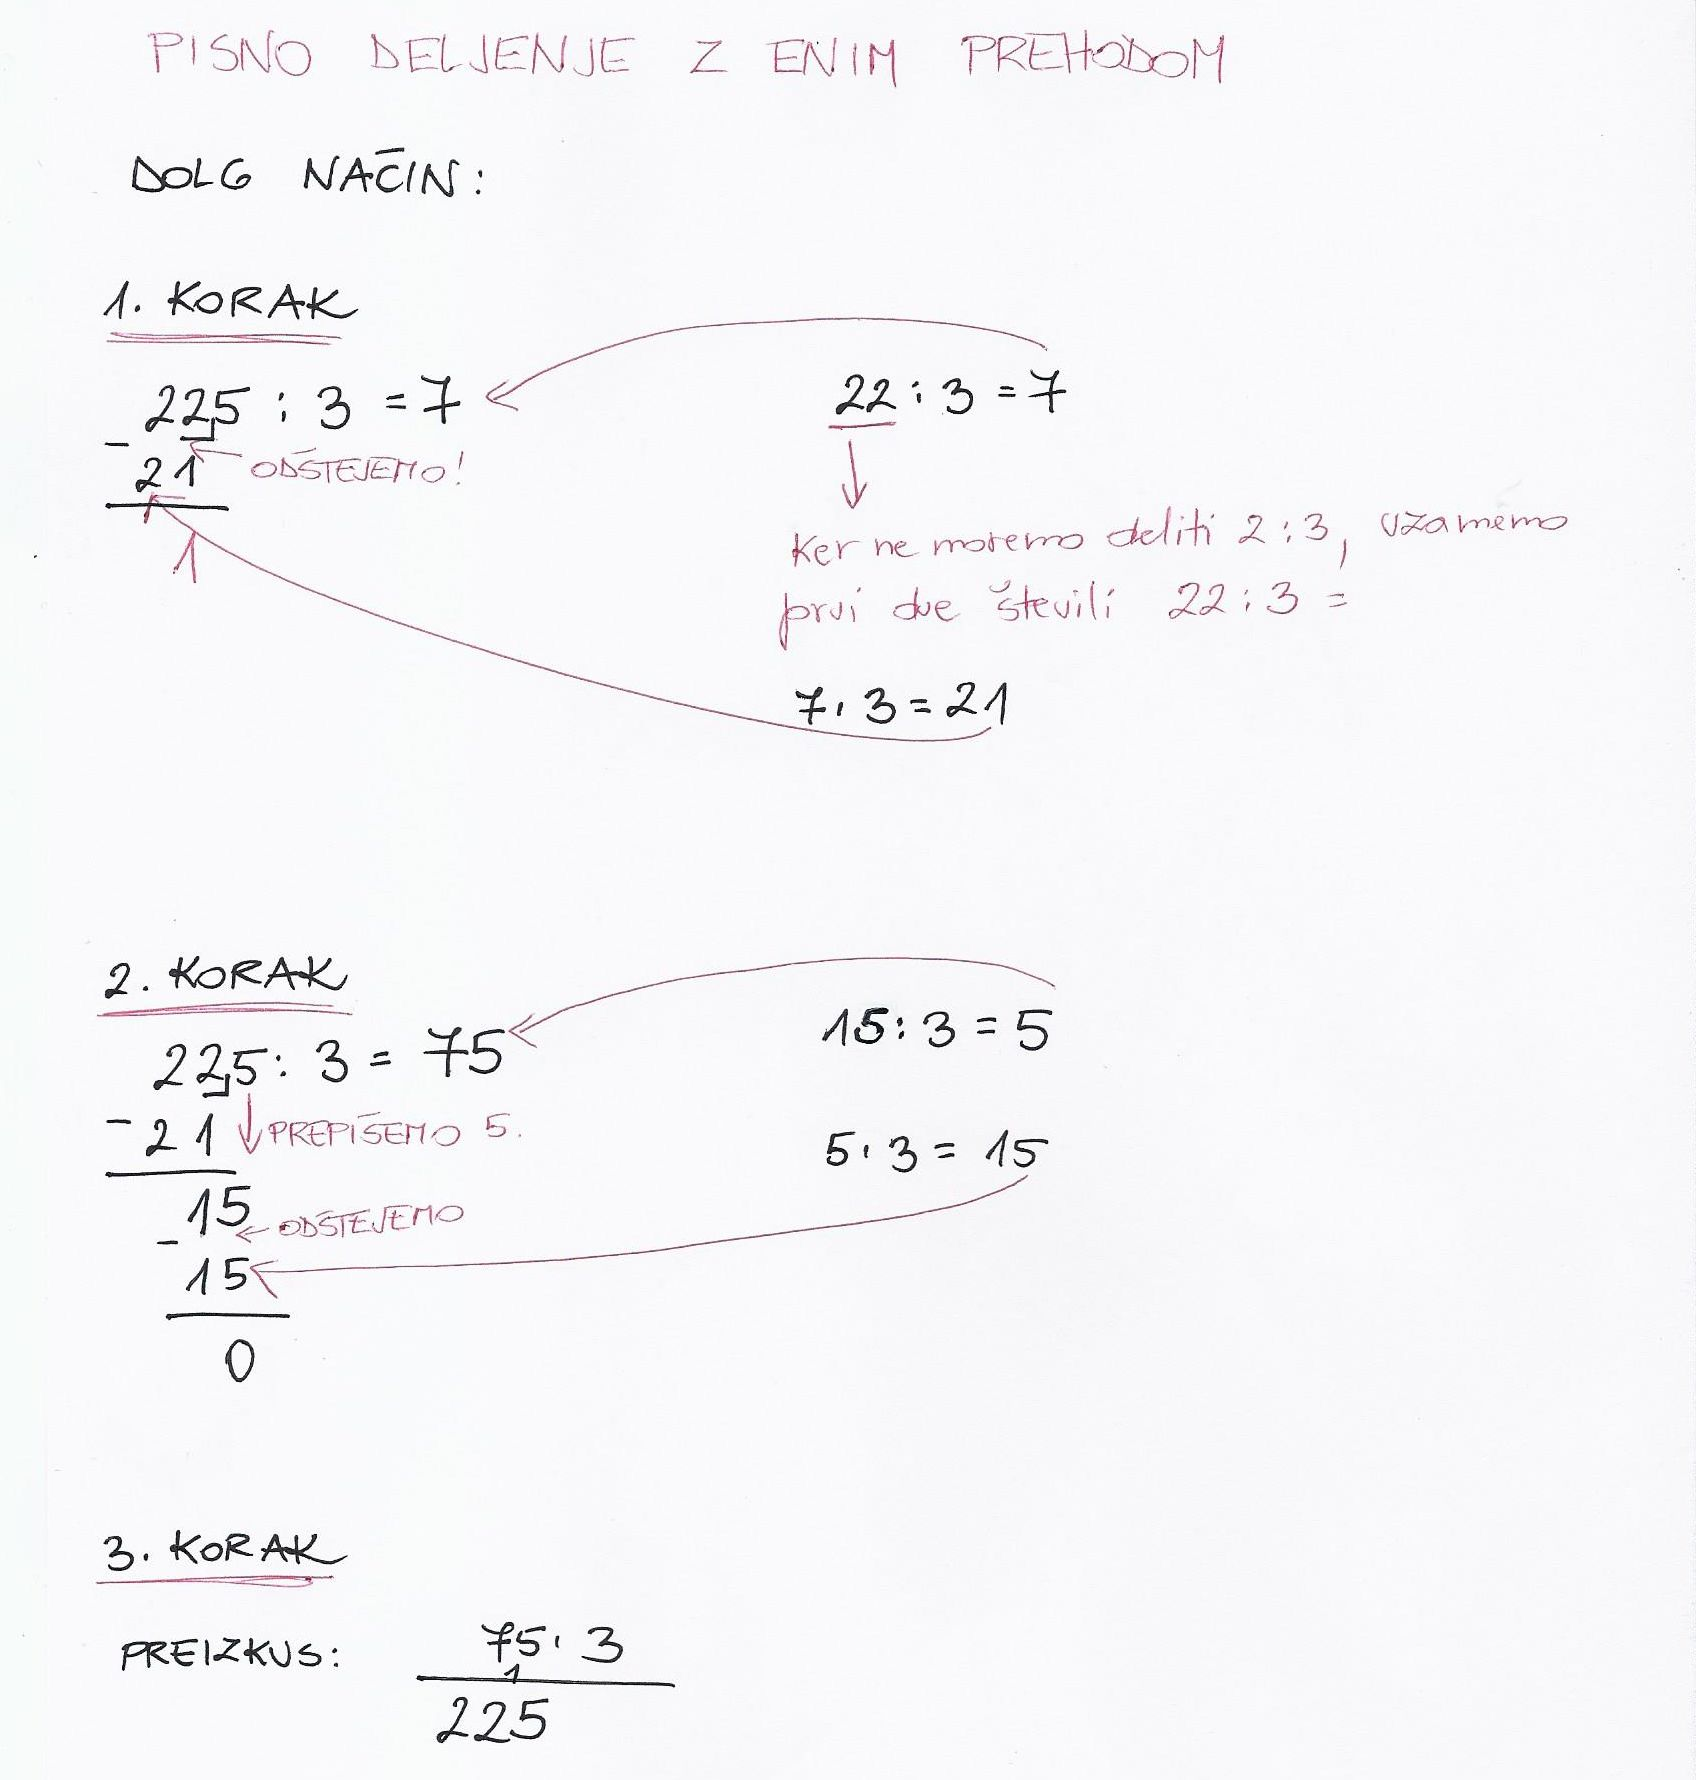 PISNO DELJENJE Z ENIM PREHODOM
DOLG NAČIN:
1. KORAK
225 : 3 = 7
- 21 ODŠTEJEMO!
1
22 : 3 = 7
Ker ne moremo deliti 2 : 3, vzamemo
prvi dve števili 22 : 3 =
7 · 3 = 21
2. KORAK
225 : 3 = 75
- 21 PREPIŠEMO 5.
15 ODŠTEJEMO
- 15
0
15 : 3 = 5
5 · 3 = 15
3. KORAK
PREIZKUS: 75 · 3
1
225